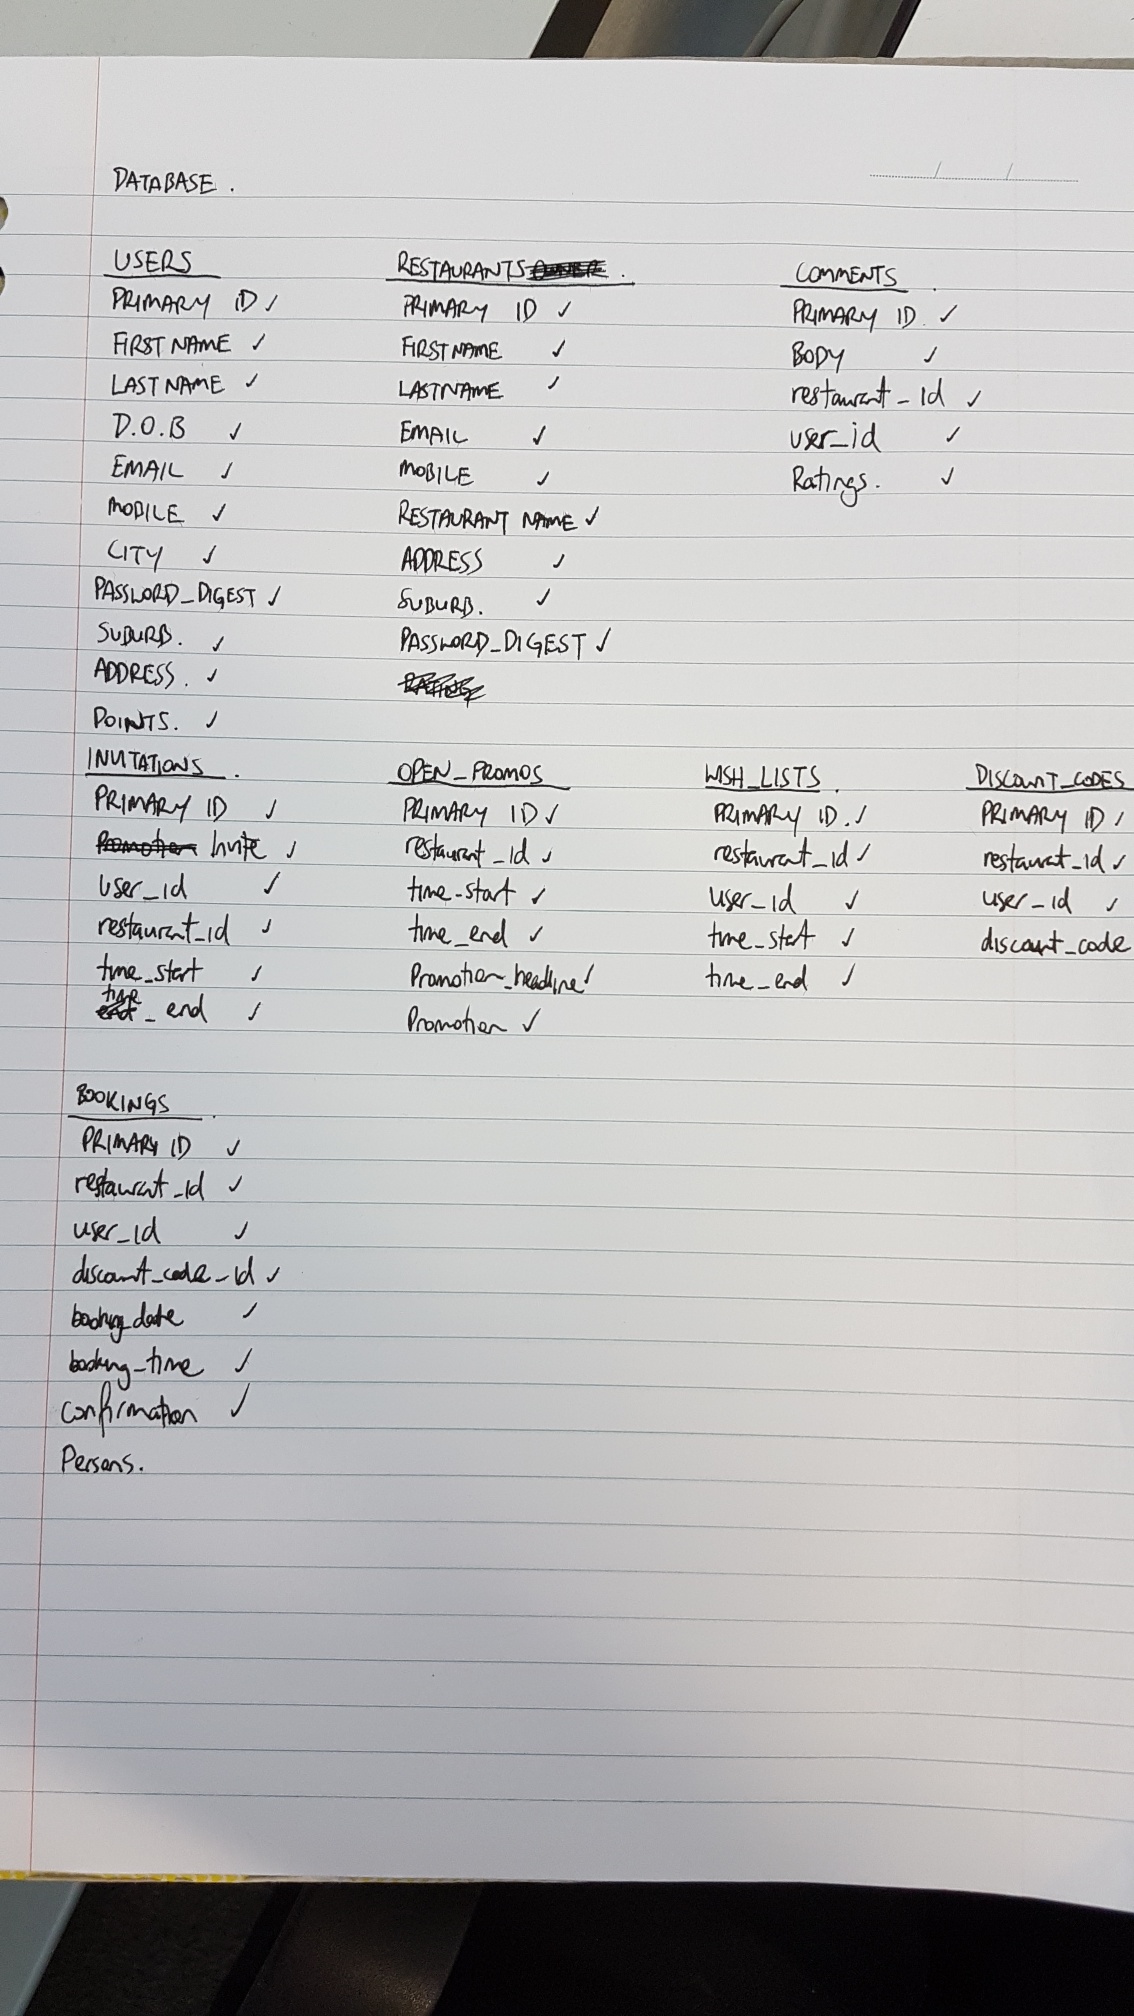 DATABASE.
USERS
PRIMARY ID ✓
FIRSTNAME ✓
LASTNAME ✓
D.O.B ✓
EMAIL ✓
MOBILE ✓
CITY ✓
PASSWORD_DIGEST ✓
SUBURB. ✓
ADDRESS. ✓
POINTS. ✓
RESTAURANTS .
PRIMARY ID ✓
FIRSTNAME ✓
LASTNAME ✓
EMAIL ✓
MOBILE ✓
RESTAURANT NAME ✓
ADDRESS ✓
SUBURB. ✓
PASSWORD_DIGEST ✓
COMMENTS .
PRIMARY ID. ✓
BODY ✓
restaurant_id ✓
user_id ✓
Ratings. ✓
INVITATIONS .
PRIMARY ID ✓
Invite ✓
user_id ✓
restaurant_id ✓
time_start ✓
time_end ✓
OPEN_PROMOS
PRIMARY ID ✓
restaurant_id ✓
time_start ✓
time_end ✓
Promotion_headline ✓
Promotion ✓
WISH_LISTS .
PRIMARY ID. ✓
restaurant_id ✓
user_id ✓
time_start ✓
time_end ✓
DISCOUNT_CODES
PRIMARY ID ✓
restaurant_id ✓
user_id ✓
discount_code
BOOKINGS .
PRIMARY ID ✓
restaurant_id ✓
user_id ✓
discount_code_id ✓
booking_date ✓
booking_time ✓
Confirmation ✓
Persons.